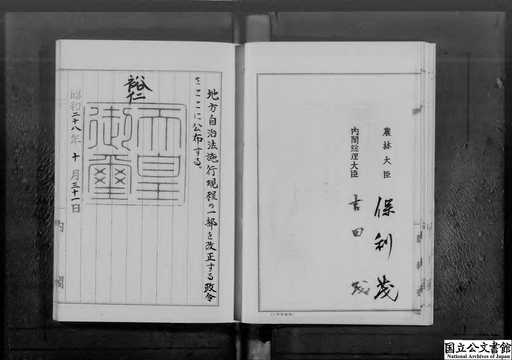 農林大臣　保利茂
内閣総理大臣　吉田茂
地方自治法施行規程の一部を改正する政令
をここに公布する。
裕仁
天皇
御璽
昭和二十八年十月三十一日
内閣
国立公文書館
National Archives of Japan